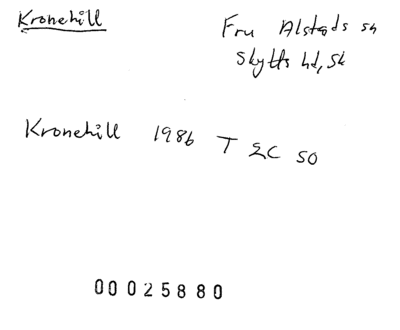 Kronehill
Fru Alstads sn
Skytts hd, Sk
Kronehill 1986 T EC SO
00025880